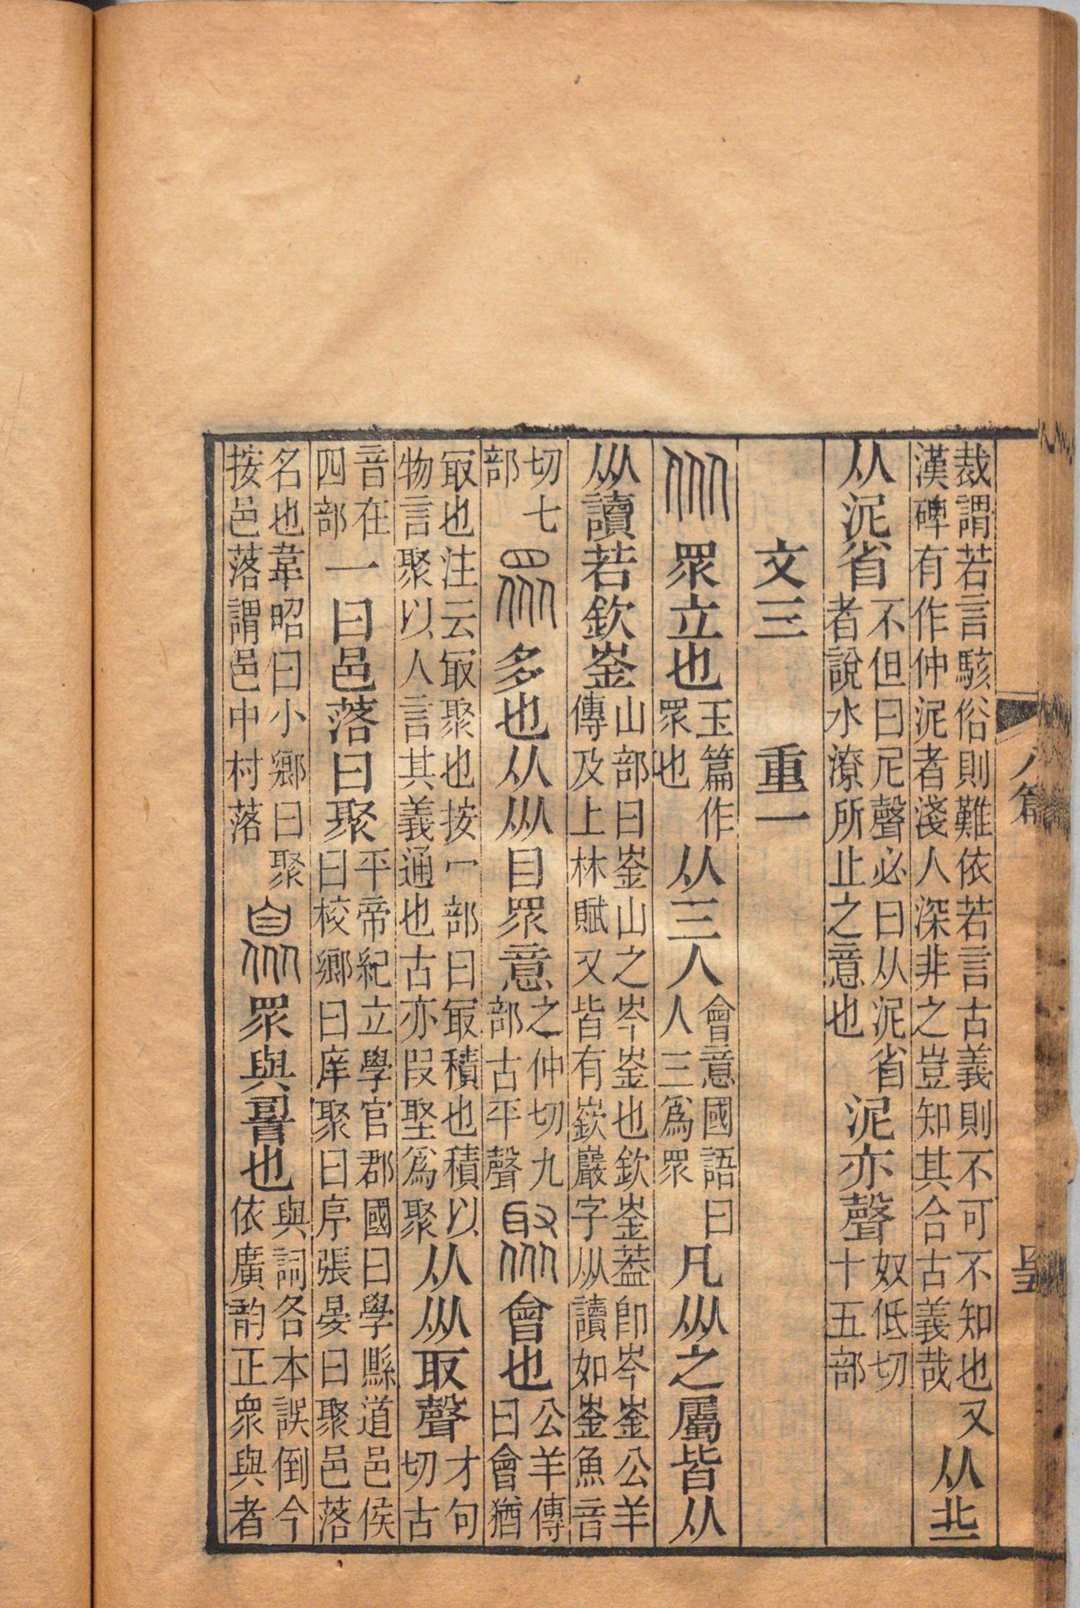 裁謂若言駭俗則難依若言古義則不可不知也又漢碑有作仲泥者淺人深非之豈知其合古義哉从丠
从泥省不但曰尼聲必曰从泥省者說水潦所止之意也泥亦聲奴低切十五部
文三　重一
㐺眾立也玉篇作眾也从三人會意國語曰人三爲眾凡㐺之屬皆从
㐺讀若欽崟山部曰崟山之岑崟也欽崟葢卽岑崟公羊傳及上林賦又皆有嶔巖字㐺讀如崟魚音
切七部眾多也从㐺目眾意之仲切九部古平聲聚會也公羊傳曰會猶
冣也注云冣聚也按冖部曰冣積也積以物言聚以人言其義通也古亦叚埾爲聚从㐺取聲才句切古
音在四部一曰邑落曰聚平帝紀立學官郡國曰學縣道邑侯曰校鄉曰庠聚曰序張晏曰聚邑落
名也韋昭曰小鄉曰聚按邑落謂邑中村落臮眾與䛐也與詞各本誤倒今依廣韵正眾與者
八篇